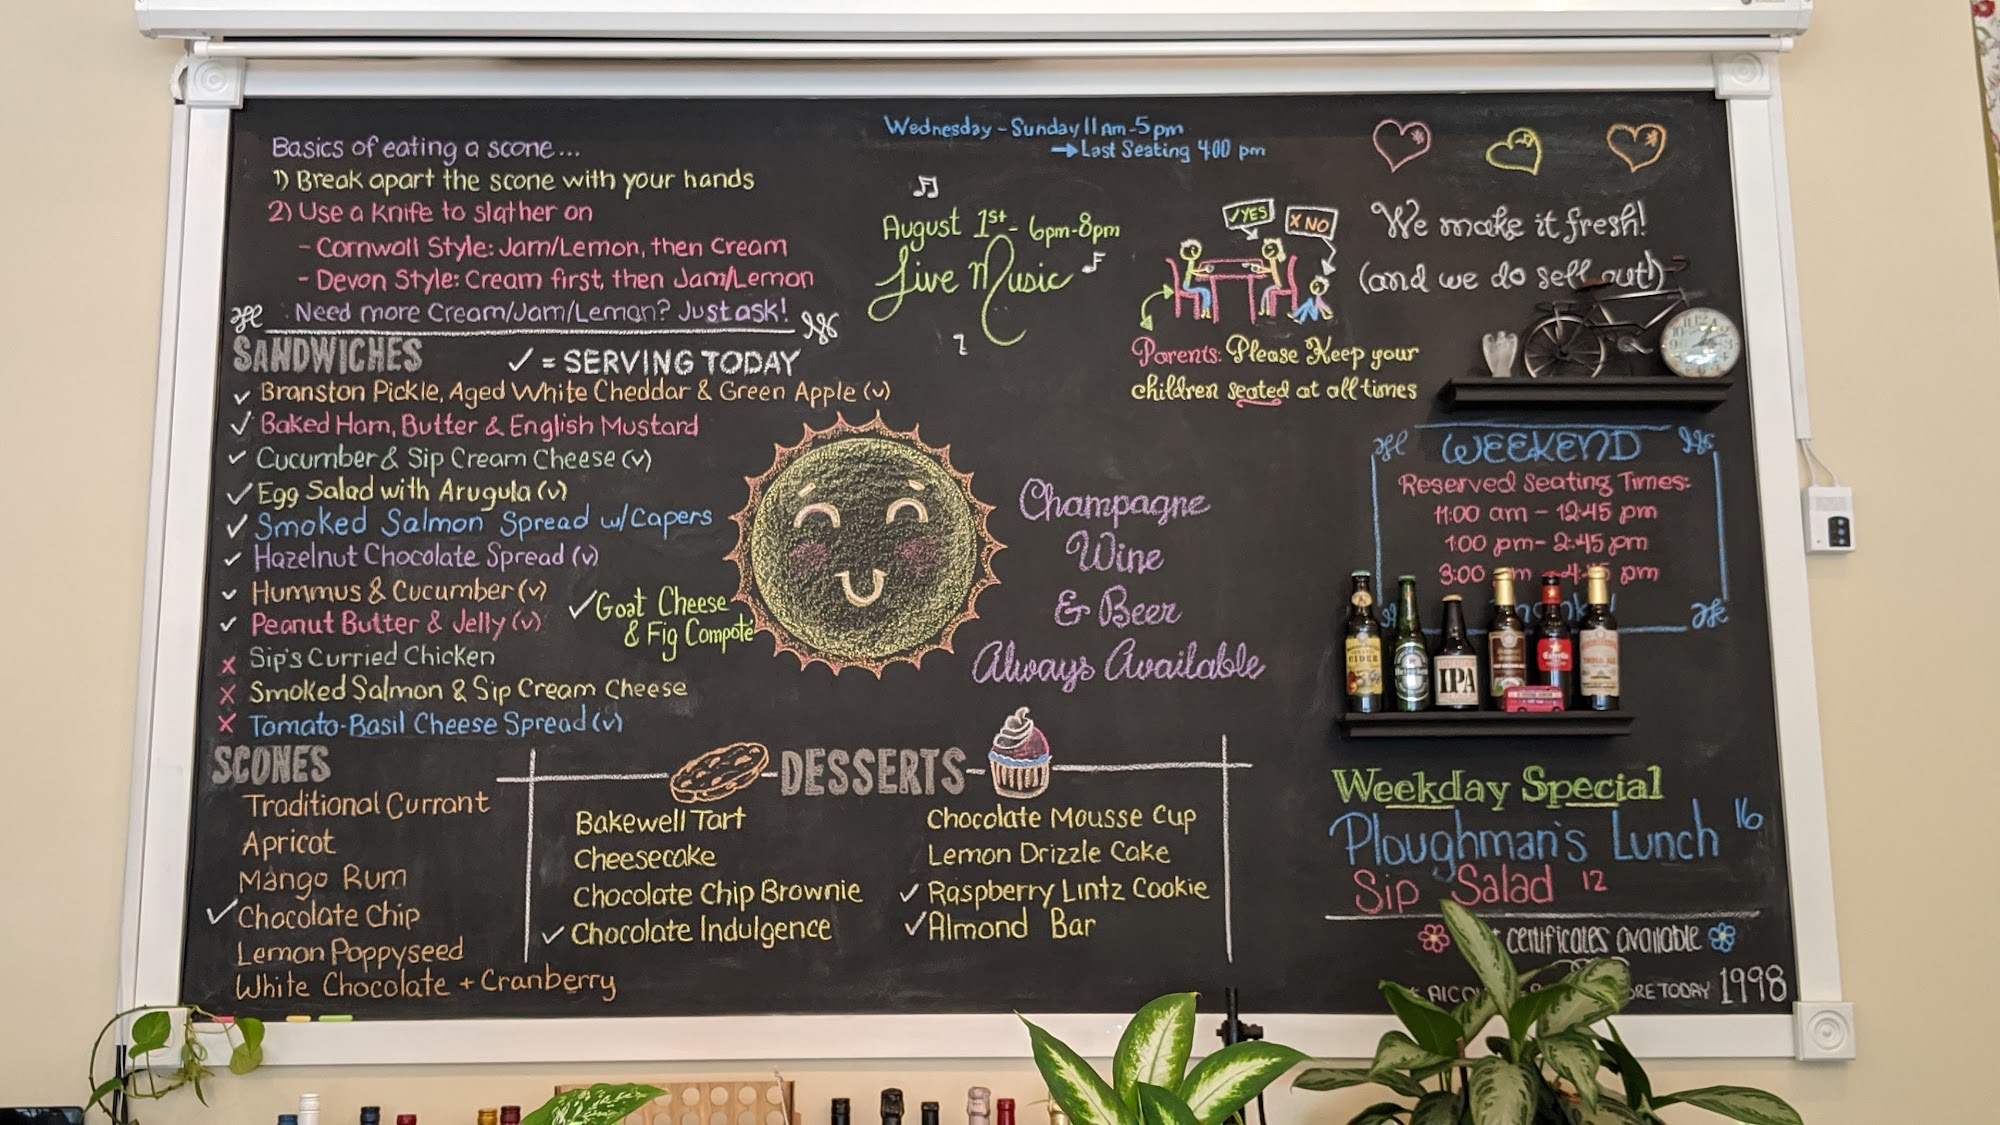 Basics of eating a scone...
1) Break apart the scone with your hands
2) Use a knife to slather on
- Cornwall Style: Jam/Lemon, then Cream
- Devon Style: Cream first, then Jam/Lemon
Need more Cream/Jam/Lemon? Just ask!
SANDWICHES
✓ = SERVING TODAY
✓ Branston Pickle, Aged White Cheddar & Green Apple (v)
✓ Baked Ham, Butter & English Mustard
✓ Cucumber & Sip Cream Cheese (v)
✓ Egg Salad with Arugula (v)
✓ Smoked Salmon Spread w/Capers
✓ Hazelnut Chocolate Spread (v)
✓ Hummus & Cucumber (v)
✓ Peanut Butter & Jelly (v)
✓ Goat Cheese
& Fig Compote
x Sip's Curried Chicken
x Smoked Salmon & Sip Cream Cheese
x Tomato-Basil Cheese Spread (v)
SCONES
Traditional Currant
Apricot
Mango Rum
✓ Chocolate Chip
Lemon Poppyseed
White Chocolate + Cranberry
DESSERTS
Bakewell Tart
Cheesecake
Chocolate Chip Brownie
✓ Chocolate Indulgence
Chocolate Mousse Cup
Lemon Drizzle Cake
✓ Raspberry Lintz Cookie
✓ Almond Bar
Wednesday - Sunday 11 am - 5 pm
→ Last Seating 4:00 pm
August 1st - 6pm-8pm
Live Music
✓YES
X NO
Parents: Please Keep your
children seated at all times
Champagne
Wine
& Beer
Always Available
We make it fresh!
(and we do sell out!)
WEEKEND
Reserved Seating Times:
11:00 am - 12:45 pm
1:00 pm - 2:45 pm
3:00 pm
CIDER
Heineken
IPA
Estrella
Weekday Special
Ploughman's Lunch 16
Sip Salad 12
certificates available
TODAY 1998